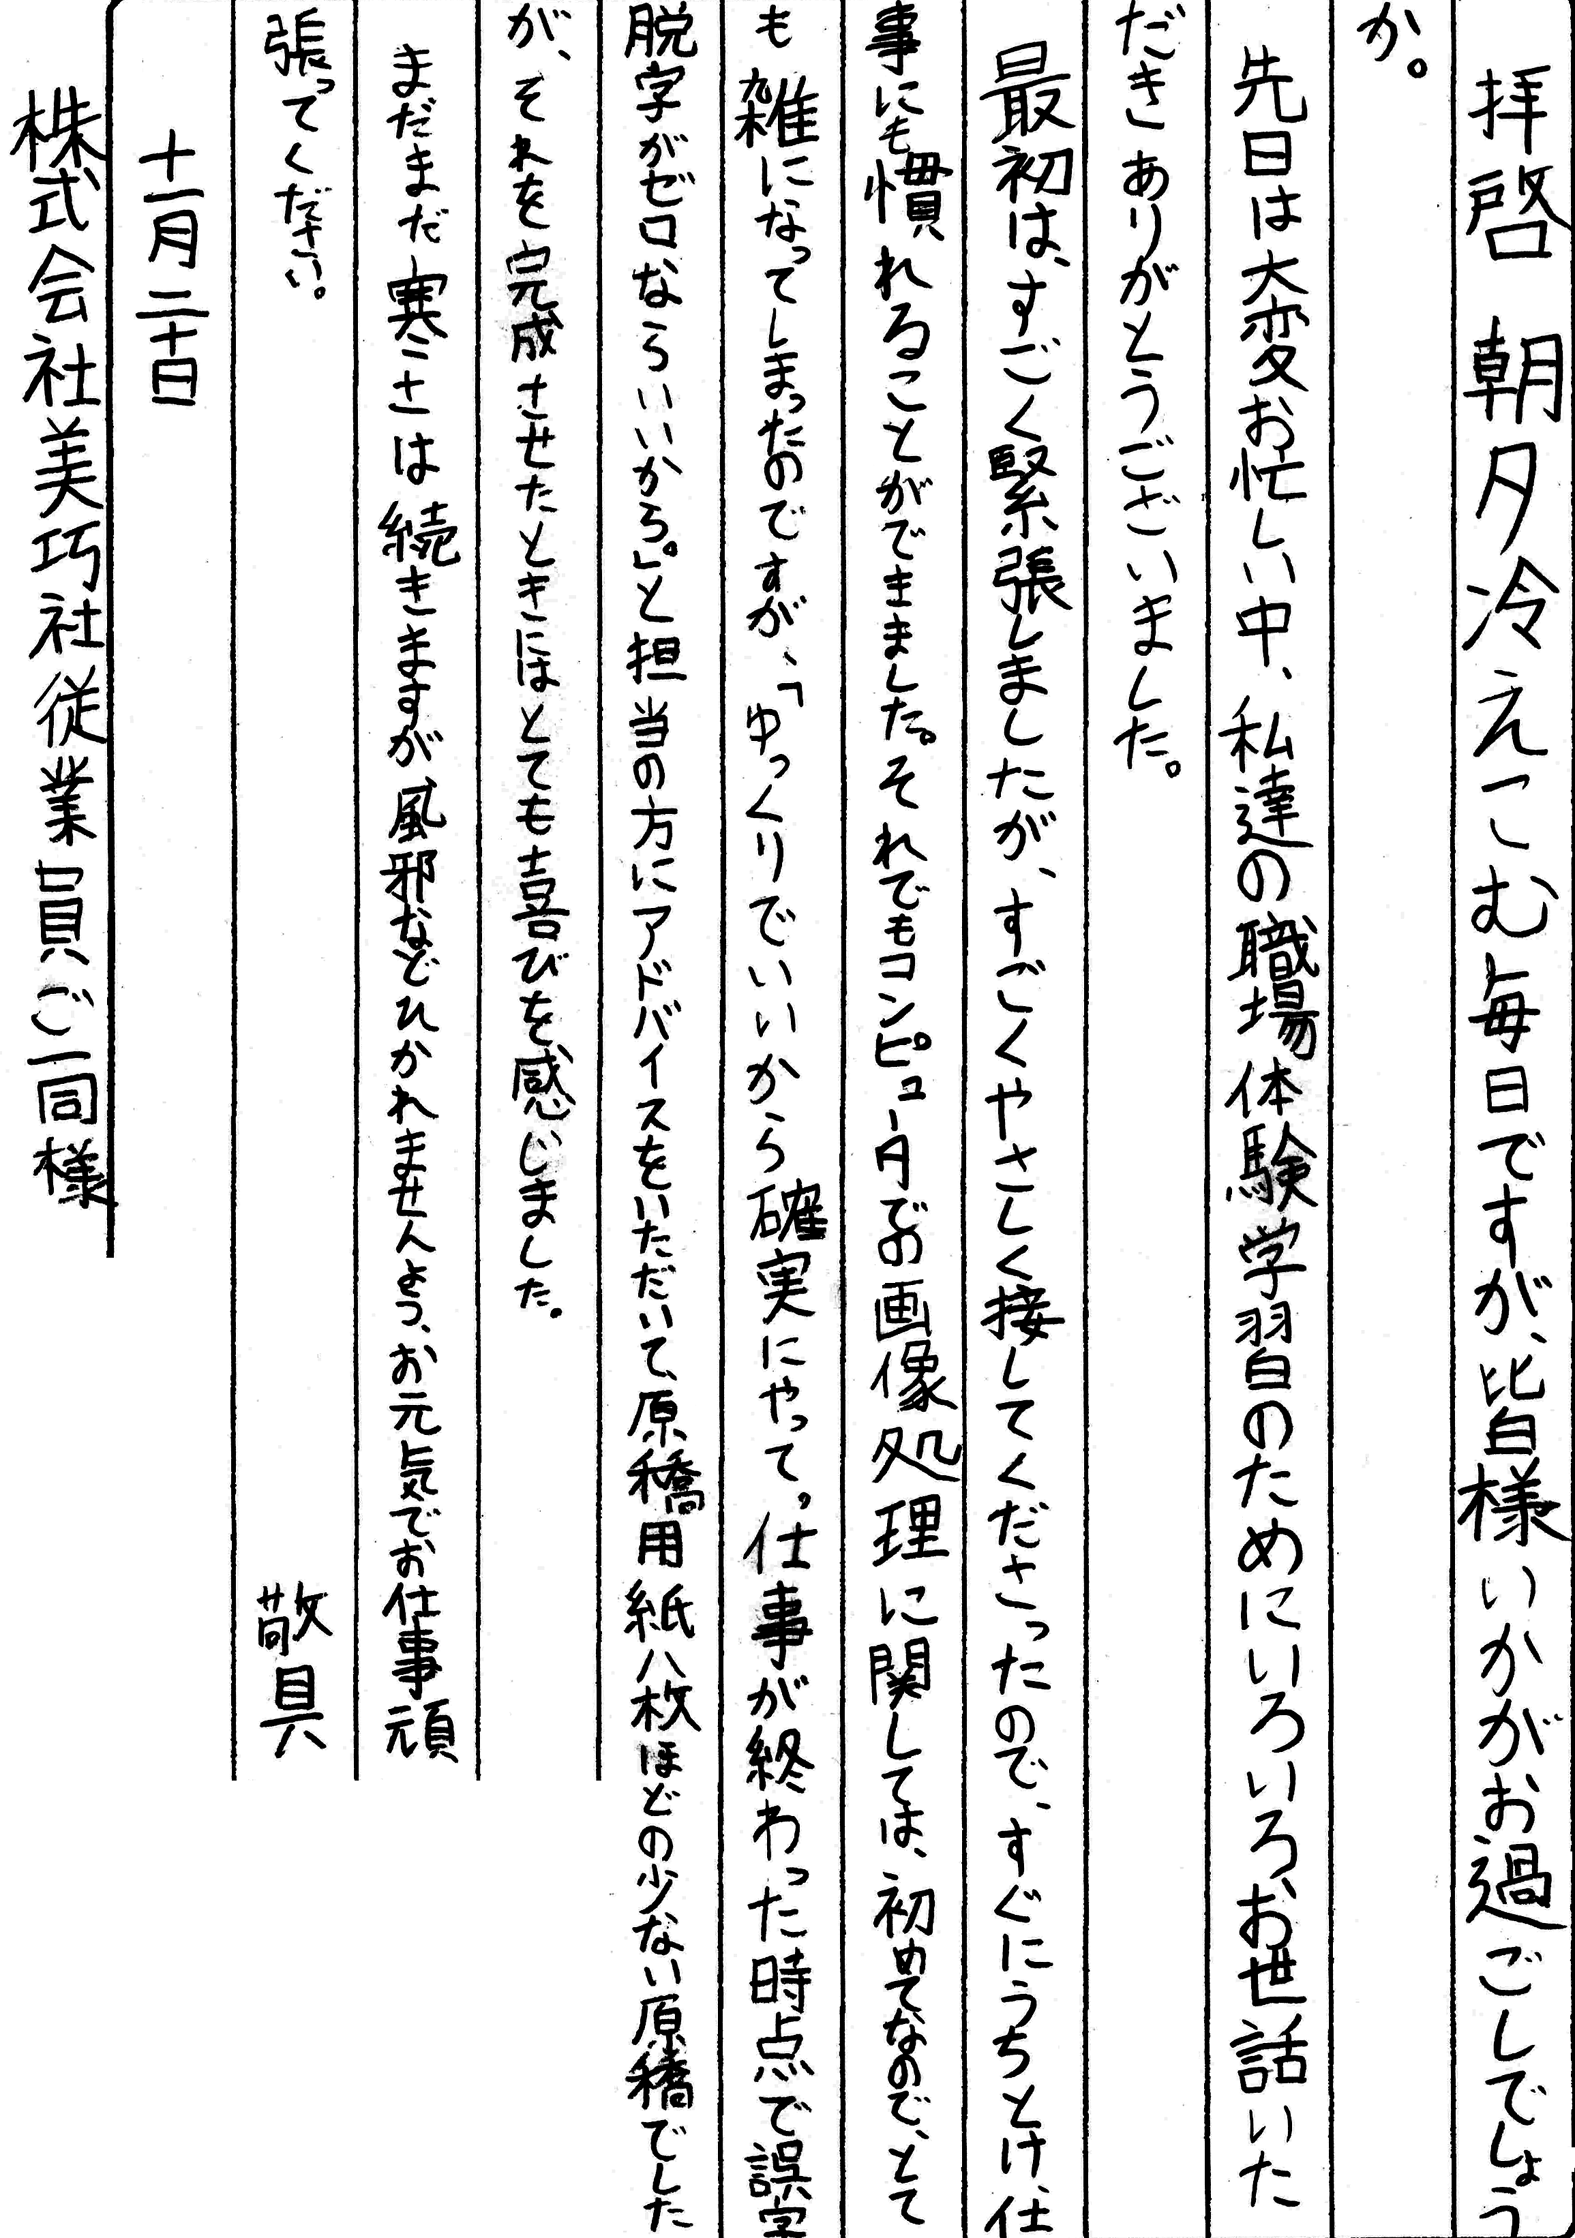 拝啓 朝夕冷えこむ毎日ですが、皆様いかがお過ごしでしょう
か。
先日は大変お忙しい中、私達の職場体験学習のためにいろいろ、お世話いた
だきありがとうございました。
最初は、すごく緊張しましたが、すごくやさしく接してくださったので、すぐにうちとけ、仕
事にも慣れることができました。それでもコンピュータでの画像処理に関しては、初めてなので、とて
も雑になってしまったのですが、「ゆっくりでいいから確実にやって。仕事が終わった時点で誤字
脱字がゼロならいいから。」と担当の方にアドバイスをいただいて、原稿用紙八枚ほどの少ない原稿でした
が、それを完成させたときにはとても喜びを感じました。
まだまだ寒さは続きますが風邪などひかれませんよう、お元気でお仕事頑
張ってください。
敬具
十一月二十日
株式会社美巧社従業員ご一同様